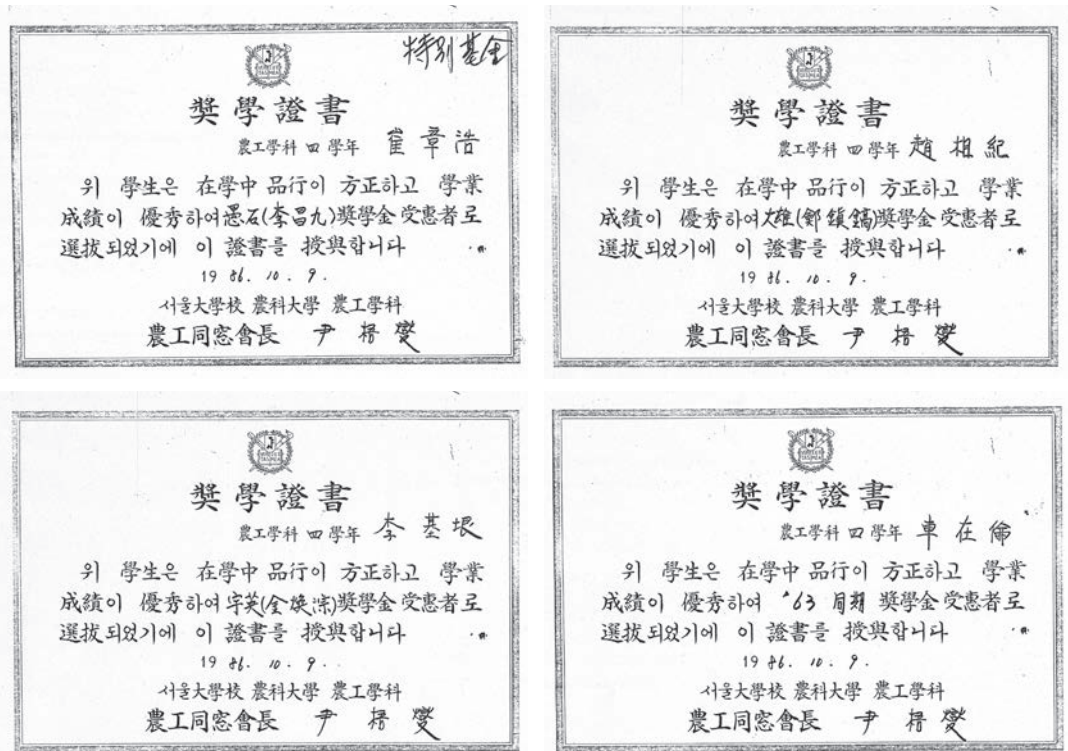 特別基金
奬學證書
農工學科 四 學年 崔章浩
위 學生은 在學中 品行이 方正하고 學業
成績이 優秀하여 石(李昌九)奬學金 受惠者로
選拔되었기에 이 證書를 授與합니다
1986. 10. 9.
서울大學校 農科大學 農工學科
農工同窓會長 尹
奬學證書
農工學科 四 學年 趙 祖 紀
위 學生은 在學中 品行이 方正하고 學業
成績이 優秀하여 大雄(鄭鎭鎬)奬學金 受惠者로
選拔되었기에 이 證書를 授與합니다
1986. 10. 9.
서울大學校 農科大學 農工學科
農工同窓會長 尹
奬學證書
農工學科 四 學年 李 基
위 學生은 在學中 品行이 方正하고 學業
成績이 優秀하여 宇英(金煥)奬學金 受惠者로
選拔되었기에 이 證書를 授與합니다
1986. 10. 9.
서울大學校 農科大學 農工學科
農工同窓會長 尹
奬學證書
農工學科 四 學年 車 在
위 學生은 在學中 品行이 方正하고 學業
成績이 優秀하여 '63 同期 奬學金 受惠者로
選拔되었기에 이 證書를 授與합니다
1986. 10. 9.
서울大學校 農科大學 農工學科
農工同窓會長 尹